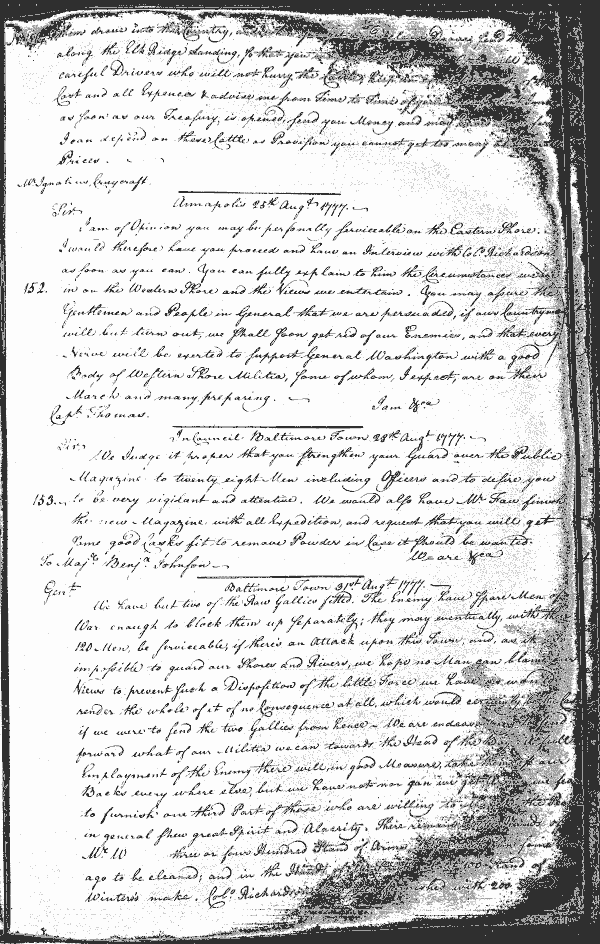 them drove into the Country, and
along the Elk Ridge Landing, so that you
careful Drivers who will not hurry the Cattle, keep
Cost and all Expences & advise me from Time to Time of your
as soon as our Treasury, is opened, send you Money and may
I can depend on these Cattle as Provision you cannot get too many at
Prices.
Mr. Ignatius Craycraft.
Annapolis 25th Augt. 1777.
Sir
I am of Opinion you may be personally serviceable on the Eastern Shore.
I would therefore have you proceed and have an Interview with Colo. Richardson
as soon as you can. You can fully explain to him the Circumstances we are
152. in on the Western Shore and the Views we entertain. You may assure the
Gentlemen and People in General that we are persuaded, if our Countrymen
will but turn out, we shall soon get red of our Enemies, and that every
Nerve will be exerted to support General Washington with a good
Body of Western Shore Militia, some of whom, I expect, are on their
March and many preparing.
I am &ca
Capt. Thomas.
In Council Baltimore Town 28th Augt. 1777.
Sir
We Judge it proper that you strengthen your Guard over the Public
Magazine to twenty eight Men including Officers and to desire you
153. to be very vigilant and attentive. We would also have Mr. Faw finish
the new Magazine with all Expedition, and request that you will get
some good Casks fit to remove Powder in Case it should be wanted.
We are &ca
To Majr. Benjn. Johnson
Baltimore Town 31st Augt. 1777.
Gent.
We have but two of the Row Gallies fitted. The Enemy have spare Men of
War enough to block them up separately; they may eventually, with their
120 Men, be serviceable, if there is an Attack upon this Town, and, as it is
impossible to guard our Shores and Rivers, we hope no Man can blame our
Views to prevent such a Disposition of the little Force we have as would
render the whole of it of no Consequence at all, which would certainly be
if we were to send the two Gallies from hence. We are endeavouring to send
forward what of our Militia we can towards the Head of the Bay
Employment of the Enemy there will, in good Measure, take them
Backs every where else, but we have not nor can we get
to furnish one third Part of those who are willing to
in general shew great Spirit and Alacrity. There remains
Mr. W three or four Hundred Stand of Arms some
ago to be cleaned; and in the Hands of 100 Stand of
Winter's make. Colo. Richardson furnished with 200